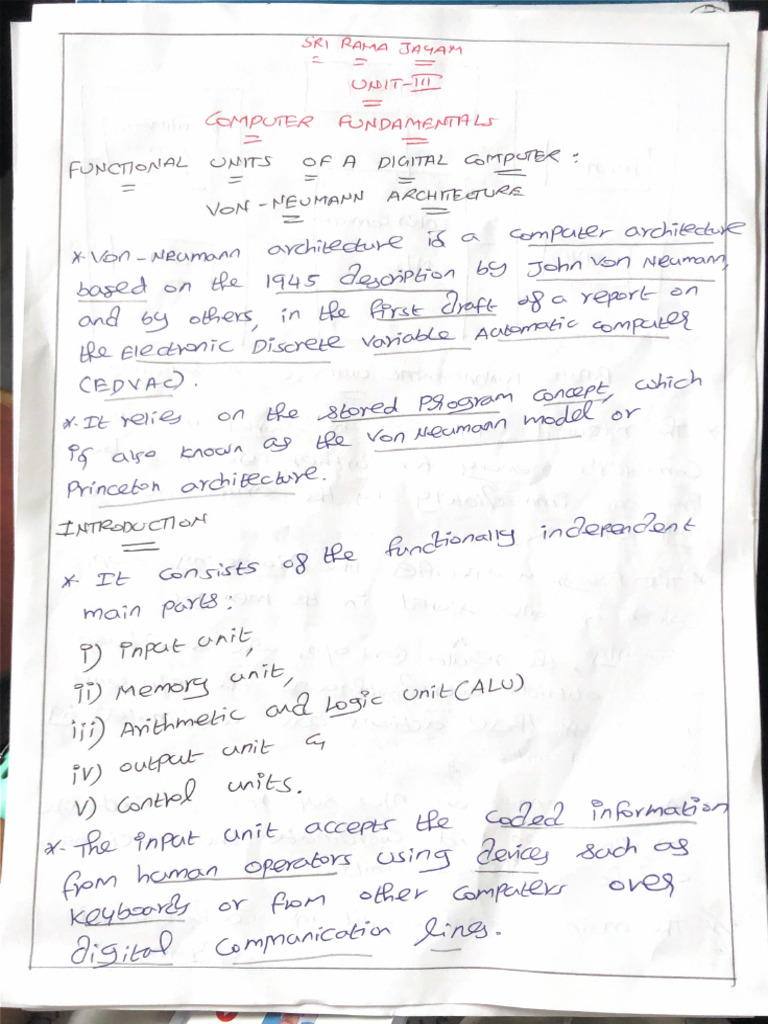 SRI RAMA JAYAM
UNIT-III
COMPUTER FUNDAMENTALS
FUNCTIONAL UNITS OF A DIGITAL COMPUTER:
VON-NEUMANN ARCHITECTURE
* Von-Neumann architecture is a computer architecture
based on the 1945 description by John Von Neumann,
and by others, in the first draft of a report on
the Electronic Discrete Variable Automatic computer
(EDVAC).
* It relies on the stored Program concept, which
is also known as the Von Neumann model or
Princeton architecture.
INTRODUCTION
* It consists of the functionally independent
main parts:
i) Input unit,
ii) Memory unit,
iii) Arithmetic and Logic unit (ALU)
iv) output unit &
v) Control units.
* The input unit accepts the coded information
from human operators using devices such as
keyboards or from other computers over
digital communication lines.